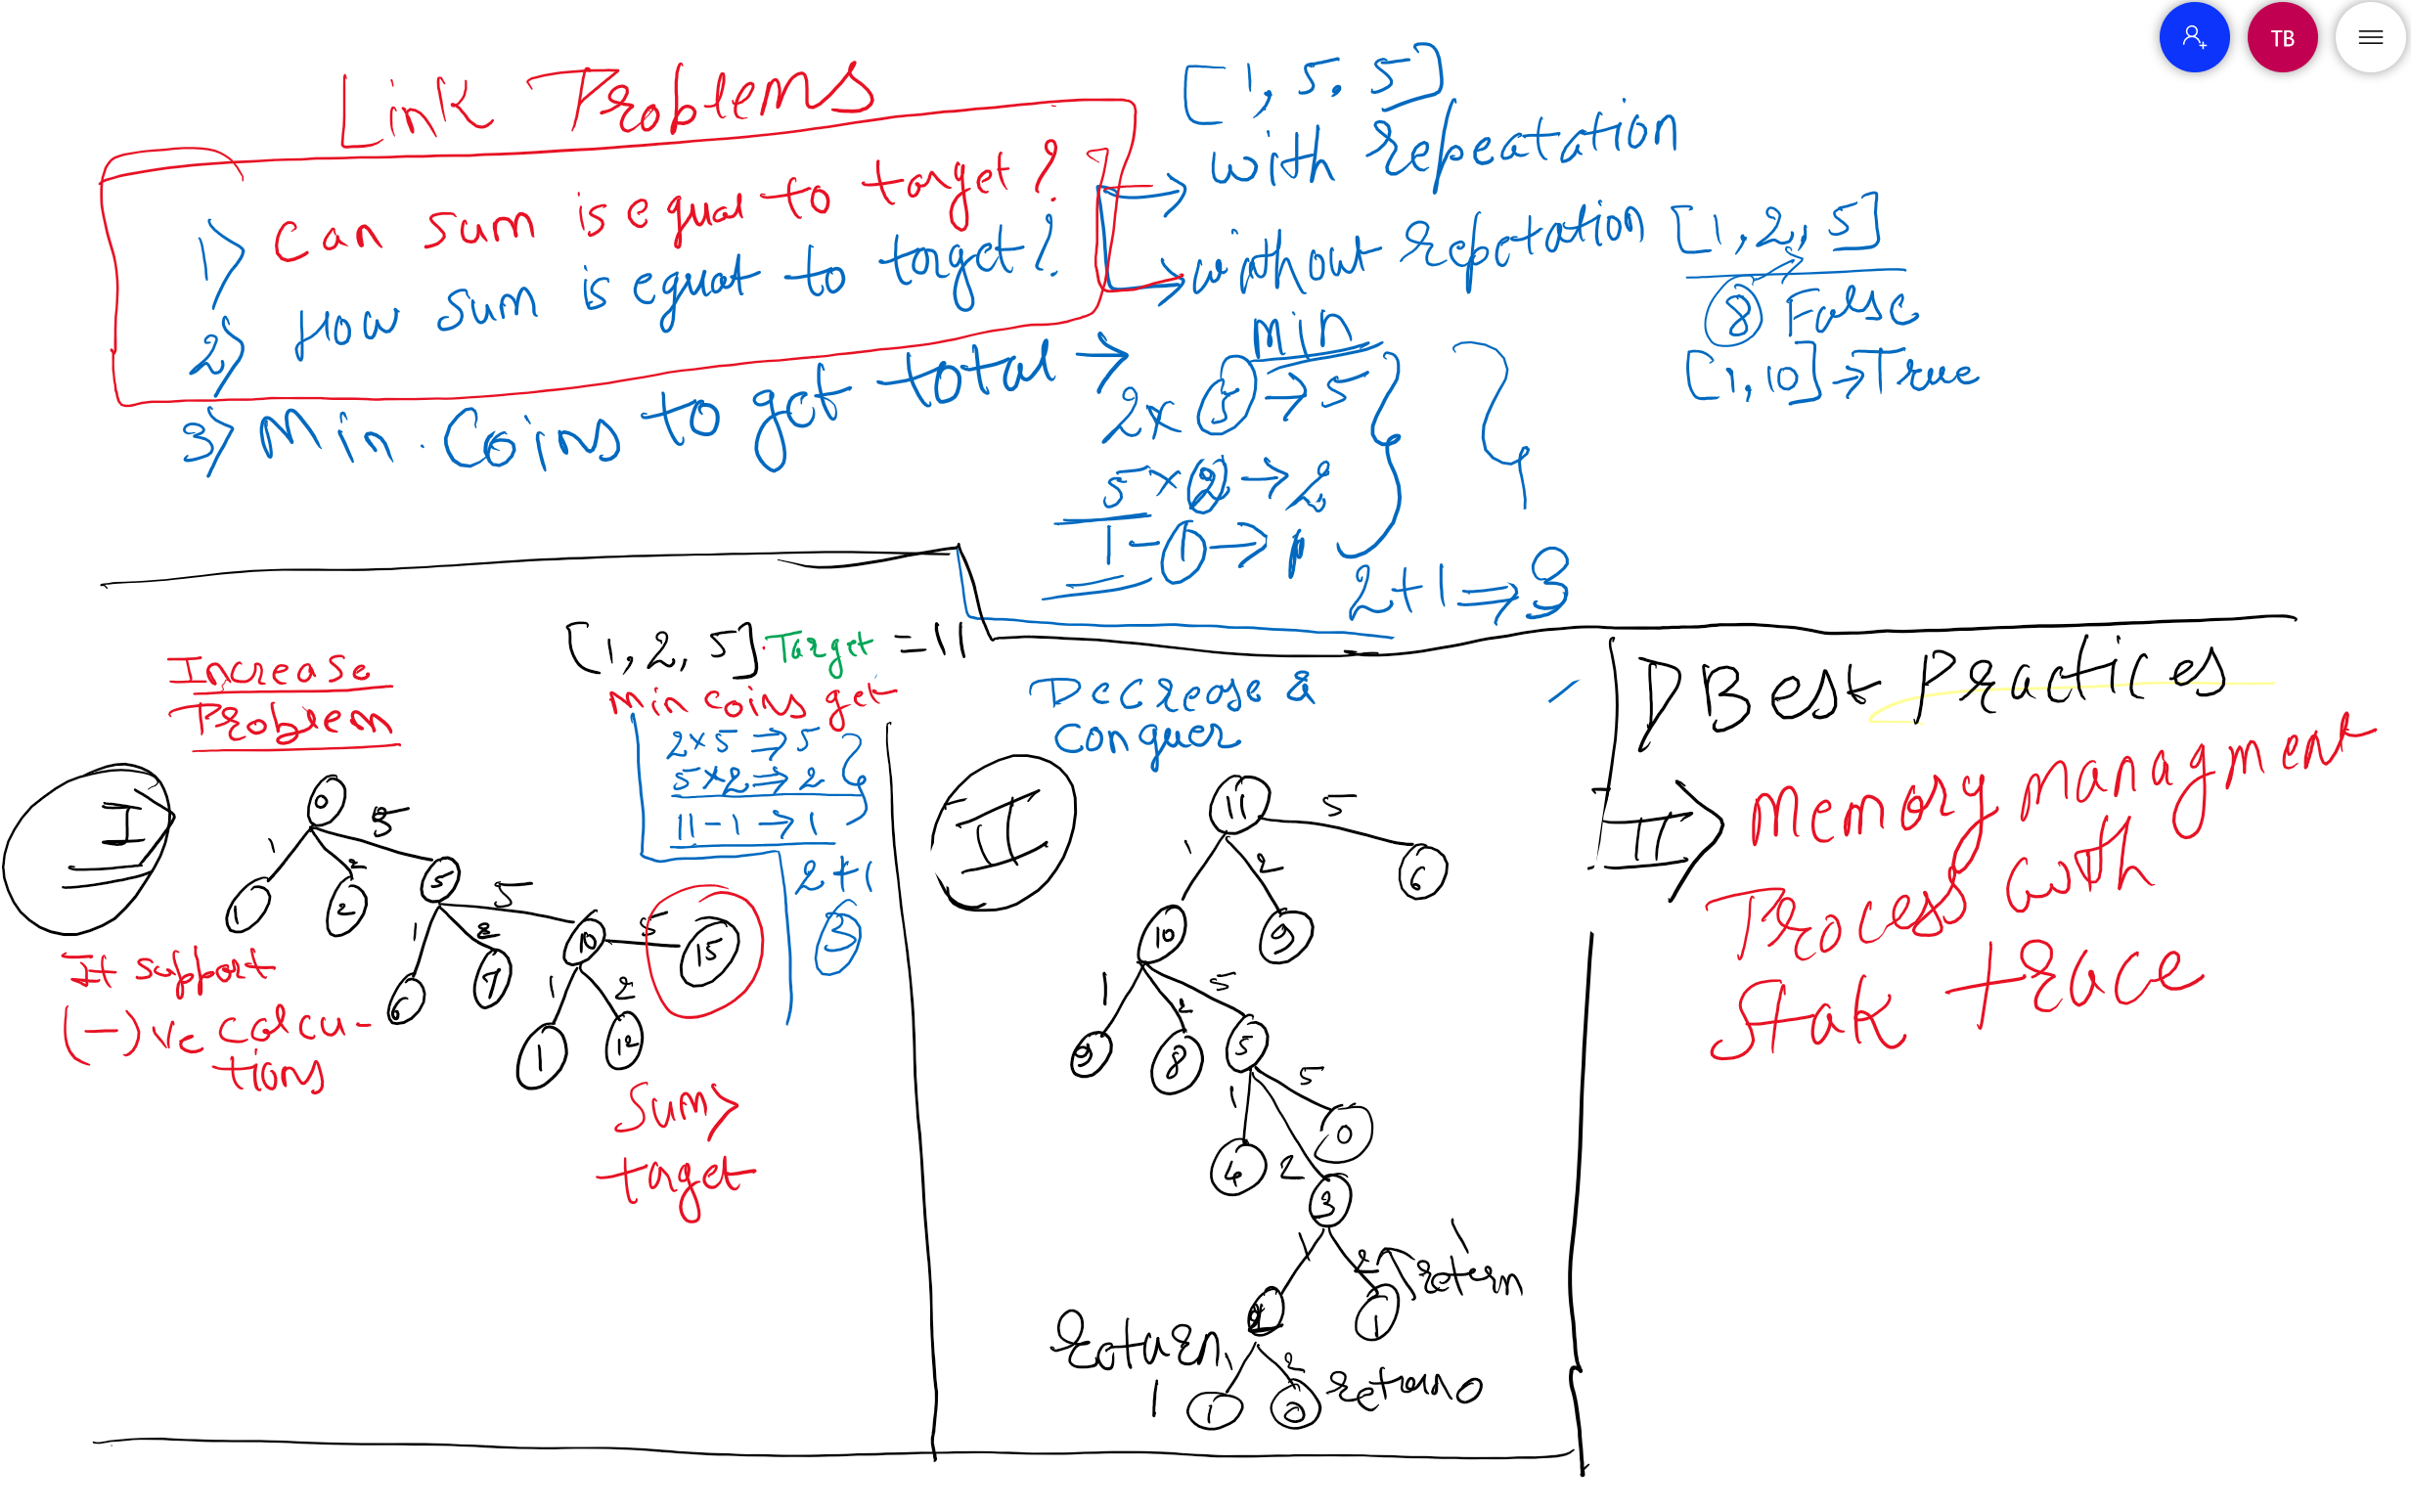 TB
Link Problems
1) Can sum is equal to target?
2) How sum is equal to target?
3) Min. Coins to get total →
[1, 5, 5]
→ with repeatation
→ without repetation [1, 2, 5]
8 False
[1, 10] → True
min
2 x 5 → 5
5 x 2 → 2
1 - 1 → 1
2+1 ⇒ 3
[1, 2, 5]. Target = 11
min coins get
2 x 5 ⇒ 5
5 x 2 ⇒ 2
11 - 1 → 1
2+1
3
Increase
Problem
I
0
1 2 5
1 2 5
1 2 5
6 7 10
1 2 5
1 12 15
It support
(-) ve calcu-
tions
Sum >
taget
Decrease &
Conquer
II
11
1 2 5
10 9 6
1 2 5
9 8 5
1 2 5
4 3 0
1 2
1 return
1 2
return 1
1 0 return 0
I) Best Practices
II) Memory managment
Process with
Stak trace